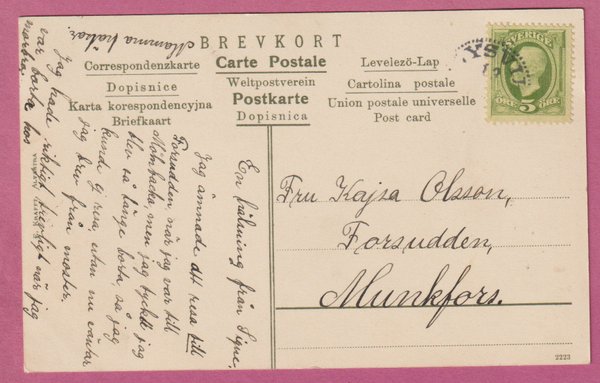 BREVKORT
Correspondenzkarte
Carte Postale
Levelező-Lap
Dopisnice
Weltpostverein
Cartolina postale
Karta korespondencyjna
Postkarte
Union postale universelle
Briefkaart
Dopisnica
Post card
SVERIGE
ÖRE 5 ÖRE
Fru Kajsa Olsson,
Forsudden,
Munkfors.
En hälsning från Signe.
Jag ämnade att resa till
Forsudden, när jag var till
Mönbacka men jag tyckte jag
blev så länge borta, så jag
kunde ej resa, utan nu väntar
jag brev från moster.
Jag hade riktigt trevligt när jag
var borta hos
morbror.
Mamma hälsar.
2223